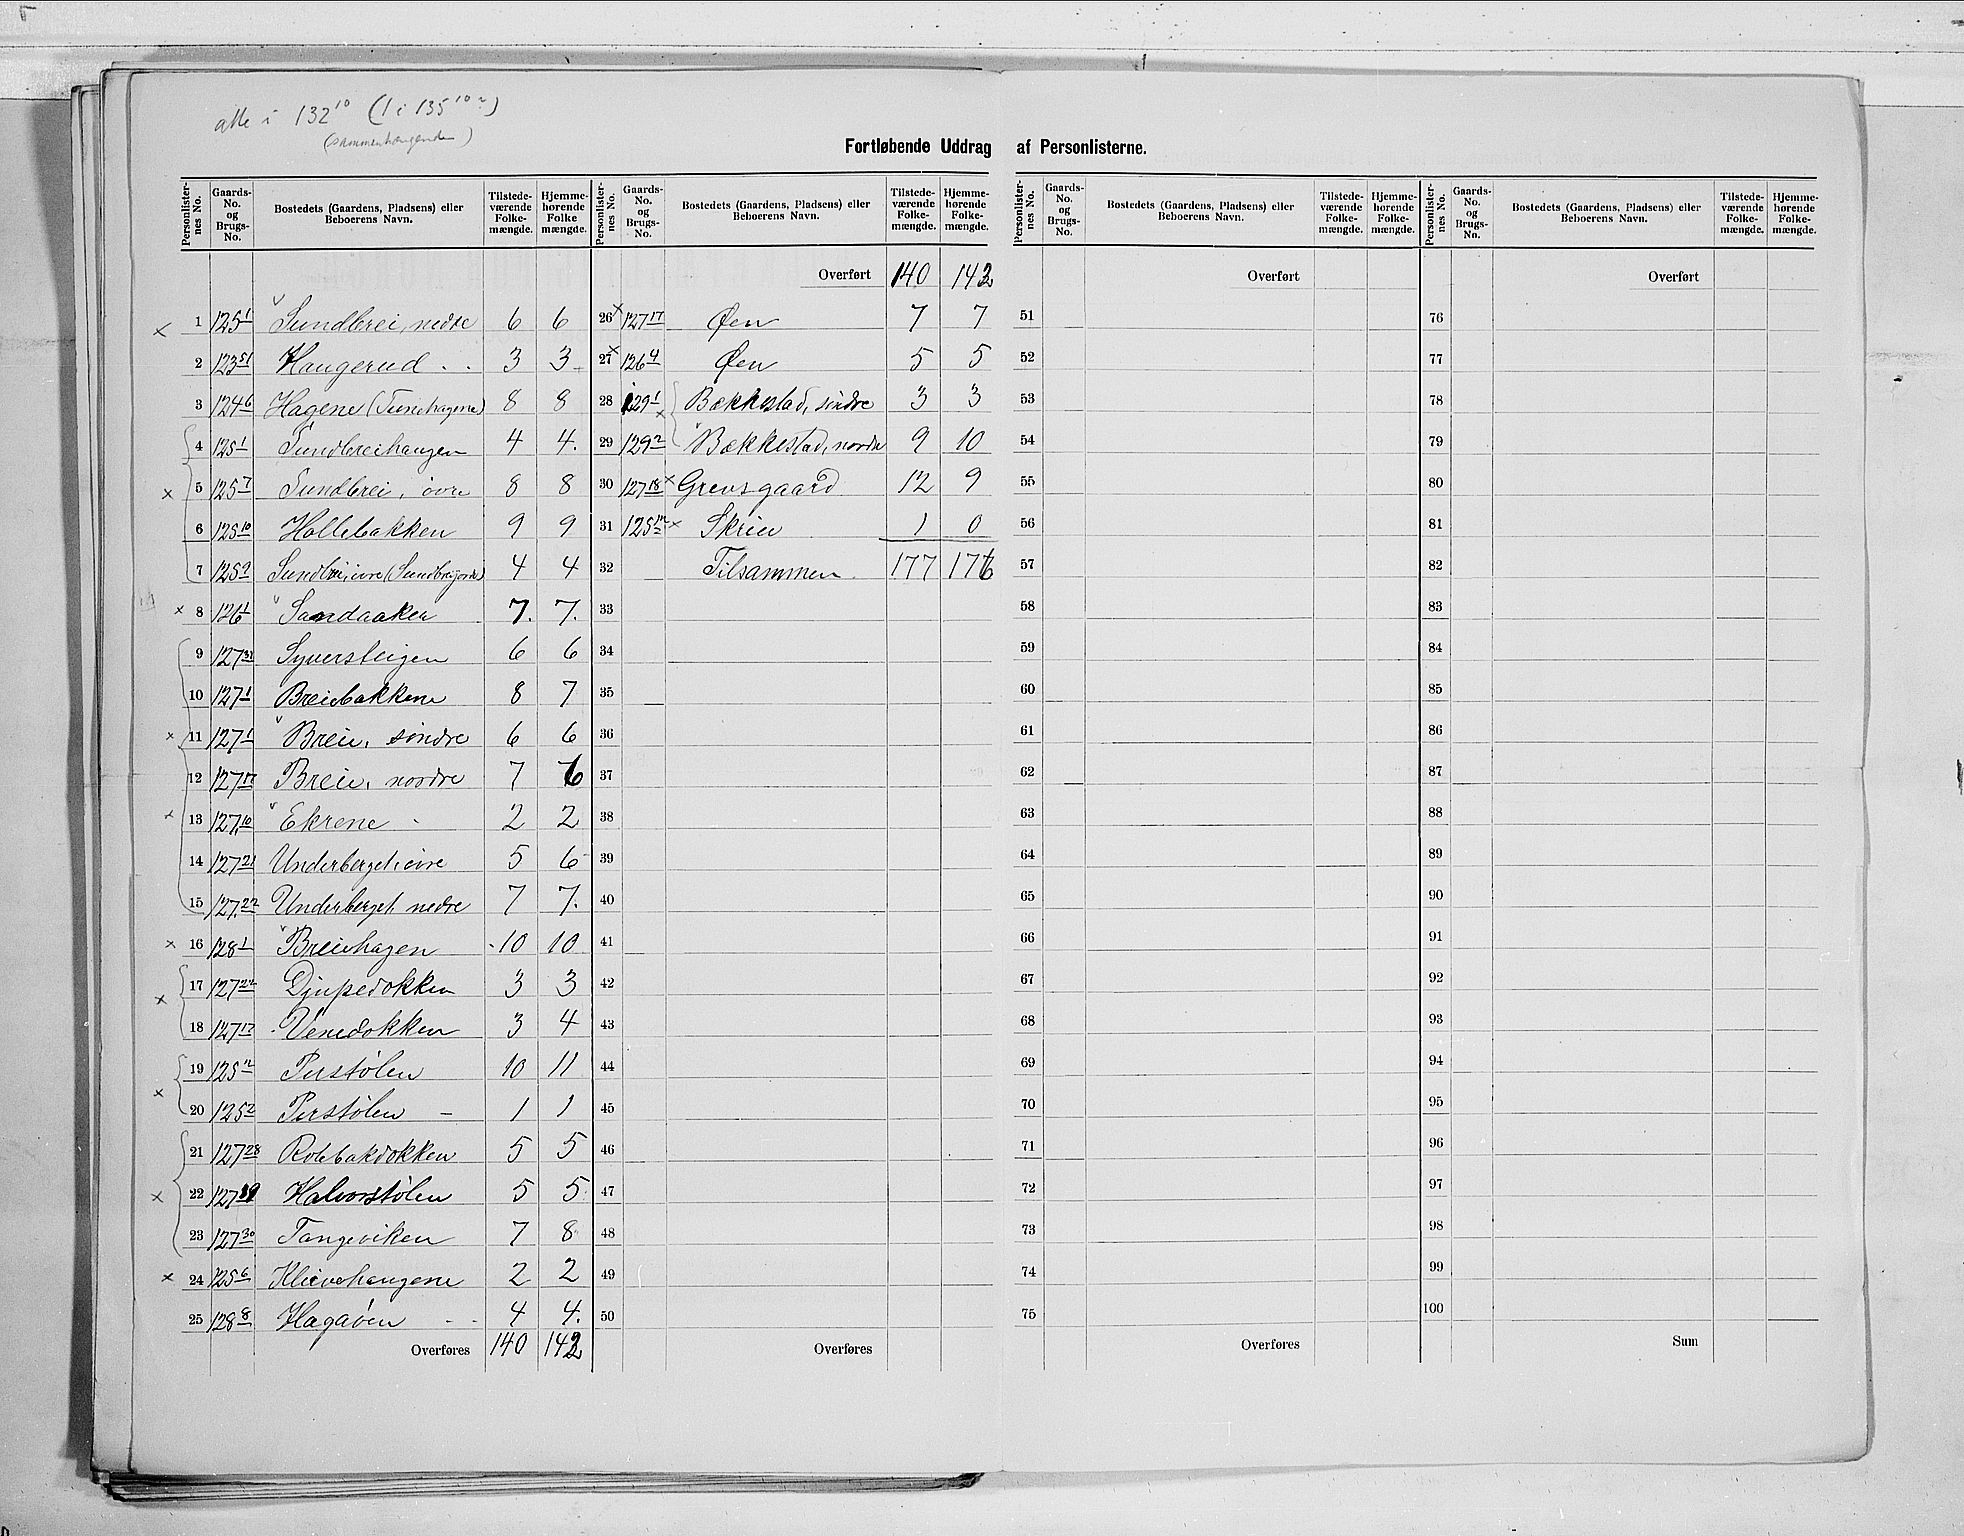 alle i 132¹⁰ (1 i 135¹⁰ ?)
(sammenhængende)
Fortløbende Uddrag af Personlisterne.
Personlisternes No. | Gaards-No. og Brugs-No. | Bostedets (Gaardens, Pladsens) eller Beboerens Navn. | Tilstedeværende Folkemængde. | Hjemmehørende Folkemængde.
1 125¹ Sundbrei, nedre 6 6
2 123⁵¹ Haugerud 3 3
3 124⁶ Hagene (Tunehagene) 8 8
4 125¹ Sundbreihaugen 4 4
5 125⁷ Sundbrei, övre 8 8
6 125¹⁰ Hollebakken 9 9
7 125⁹ Sundbrei, övre (Sundbreijorde) 4 4
8 126¹ Sandaaker 7 7
9 127³² Syversteigen 6 6
10 127¹ Breiebakkene 8 7
11 127¹ Breie, söndre 6 6
12 127¹⁷ Breie, nordre 7 6
13 127¹⁰ Ekrene 2 2
14 127²¹ Underberget, övre 5 6
15 127²² Underberget, nedre 7 7
16 128¹ Breiehagen 10 10
17 127²² Djupedokken 3 3
18 127¹⁷ Venedokken 3 4
19 125² Perstølen 10 11
20 125² Perstølen 1 1
21 127²⁸ Robbakdokken 5 5
22 127¹⁹ Halvorstølen 5 5
23 127³⁰ Tangeviken 7 8
24 125⁶ Klievehaugene 2 2
25 128⁸ Hagaöen 4 4
Overføres 140 142
Personlisternes No. | Gaards-No. og Brugs-No. | Bostedets (Gaardens, Pladsens) eller Beboerens Navn. | Tilstedeværende Folkemængde. | Hjemmehørende Folkemængde.
Overført 140 142
26 127¹⁷ Øen 7 7
27 126⁴ Øen 5 5
28 129¹ Bækkestad, söndre 3 3
29 129² Bækkestad, nordre 9 10
30 127¹⁸ Grevsgaard 12 9
31 125¹² Skrien 1 0
32 Tilsammen 177 176
33
34
35
36
37
38
39
40
41
42
43
44
45
46
47
48
49
50
Overføres
Personlisternes No. | Gaards-No. og Brugs-No. | Bostedets (Gaardens, Pladsens) eller Beboerens Navn. | Tilstedeværende Folkemængde. | Hjemmehørende Folkemængde.
Overført
51
52
53
54
55
56
57
58
59
60
61
62
63
64
65
66
67
68
69
70
71
72
73
74
75
Overføres
Personlisternes No. | Gaards-No. og Brugs-No. | Bostedets (Gaardens, Pladsens) eller Beboerens Navn. | Tilstedeværende Folkemængde. | Hjemmehørende Folkemængde.
Overført
76
77
78
79
80
81
82
83
84
85
86
87
88
89
90
91
92
93
94
95
96
97
98
99
100
Sum